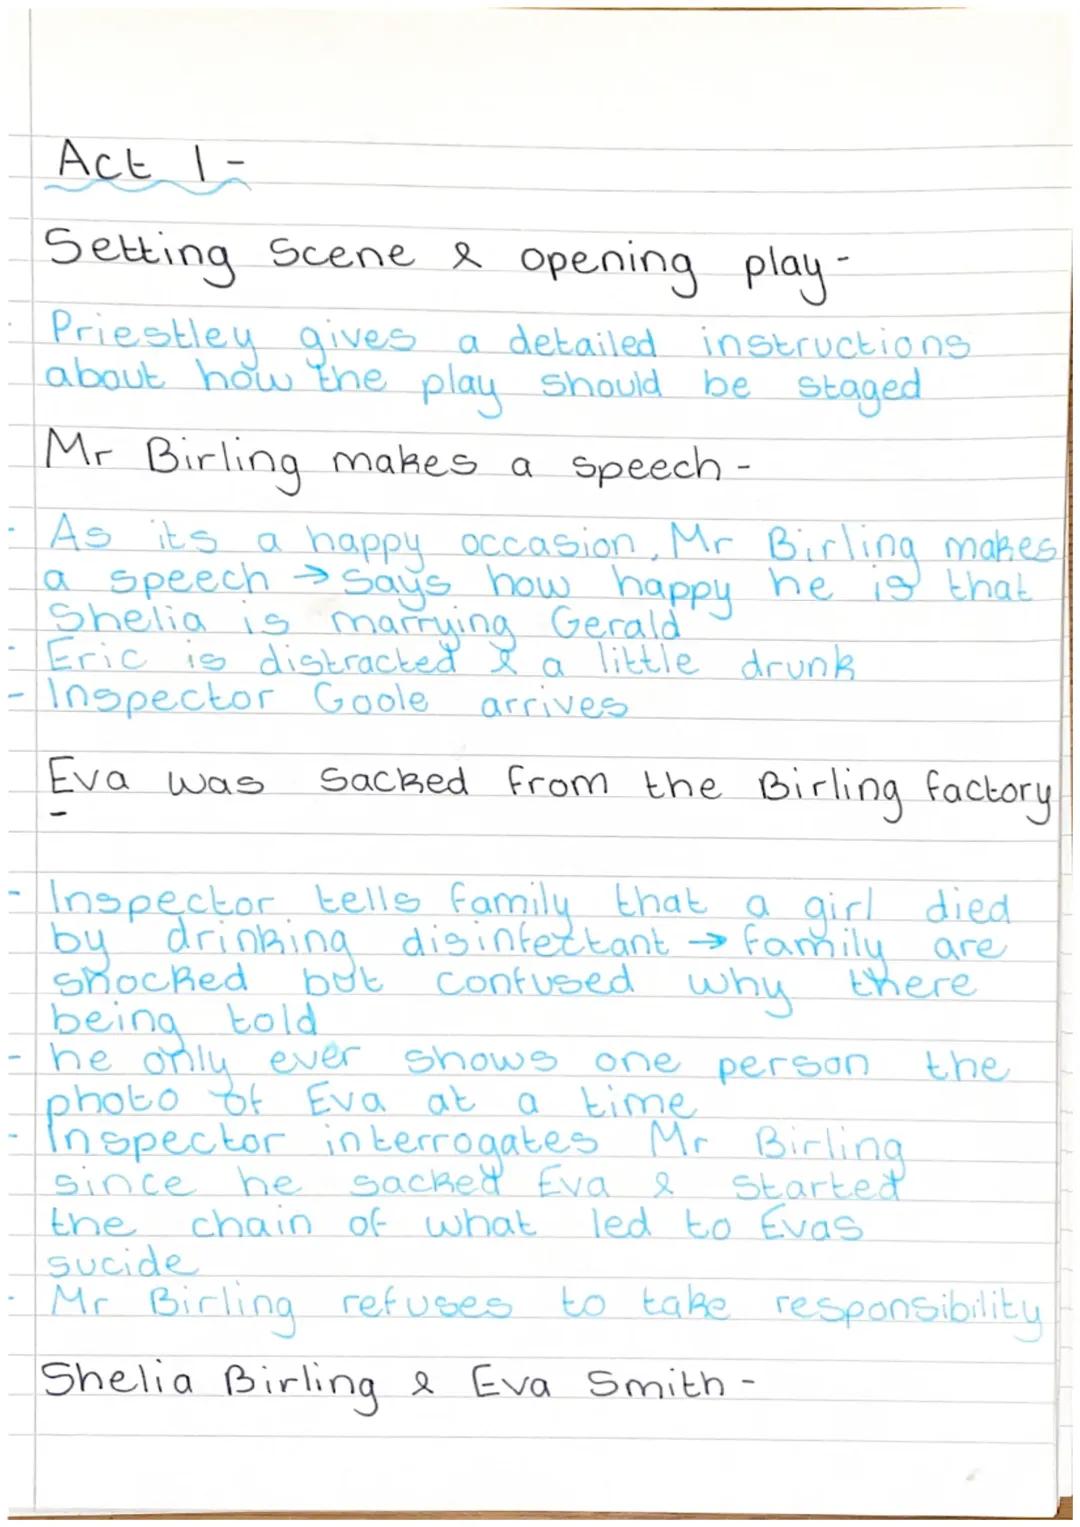 Act 1 -
Setting Scene & opening play -
- Priestley gives a detailed instructions
about how the play should be staged
Mr Birling makes a speech -
- As its a happy occasion, Mr Birling makes
a speech → says how happy he is that
Shelia is marrying Gerald
- Eric is distracted & a little drunk
- Inspector Goole arrives
Eva was sacked from the Birling factory
-
- Inspector tells family that a girl died
by drinking disinfectant → family are
shocked but confused why there
being told
- he only ever shows one person the
photo of Eva at a time
- Inspector interrogates Mr Birling
since he sacked Eva & started
the chain of what led to Evas
sucide
- Mr Birling refuses to take responsibility
Shelia Birling & Eva Smith -